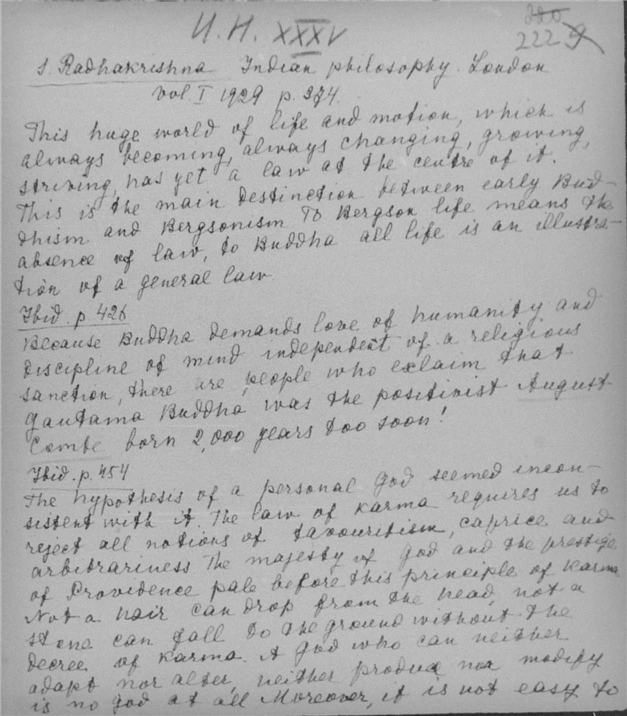 И. Н. XXXV
220
222 9
S. Radhakrishna Indian philosophy. London
vol I 1929 p. 374.
This huge world of life and motion, which is
always becoming, always changing, growing,
striving, has yet a law at the centre of it.
This is the main destinction between early Bud-
dhism and Bergsonism To Bergson life means the
absence of law, to Buddha all life is an illustra-
tion of a general law.
Ibid. p. 426
Because Buddha demands love of humanity and
discipline of mind independent of a religious
sanction, there are people who exclaim that
Gautama Buddha was the positivist August
Combe born 2,000 years too soon!
Ibid. p. 454
The hypothesis of a personal God seemed incon-
sistent with it. The law of karma requires us to
reject all notions of favouritism, caprice and
arbitrariness The majesty of God and the prestige
of Providence pale before this principle of Karma
Not a hair can drop from the head, not a
stone can fall to the ground without the
decree of karma. A God who can neither
adapt nor alter, neither produce nor modify
is no god at all Moreover, it is not easy to